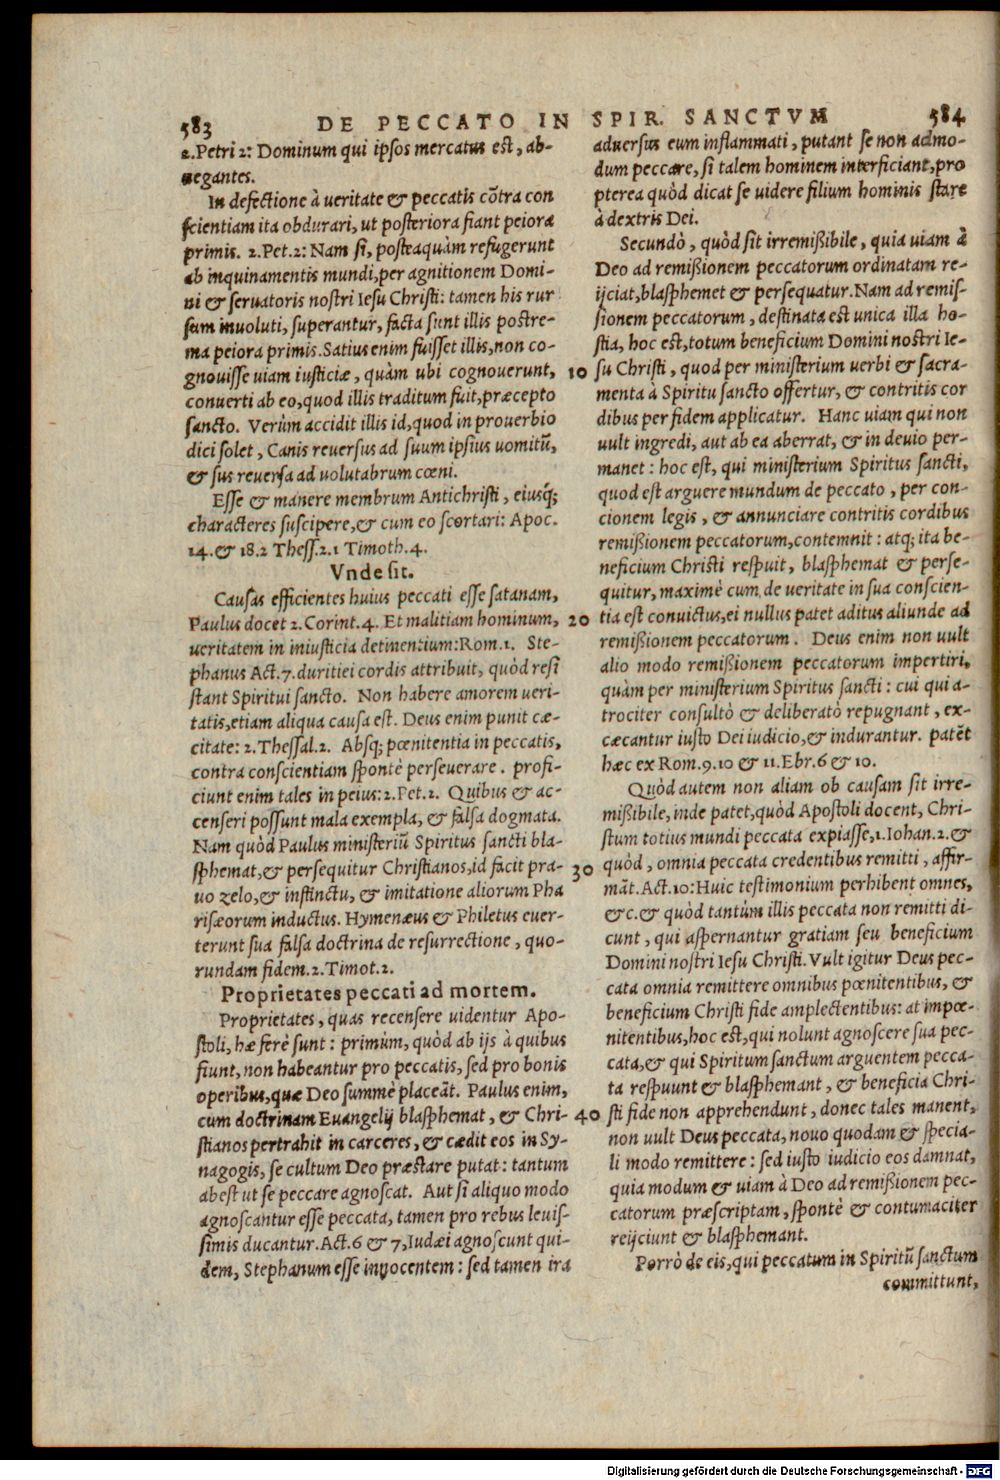 583 DE PECCATO IN SPIR. SANCTVM 584
2.Petri 2: Dominum qui ipsos mercatus est, ab-
negantes.
In defectione à ueritate & peccatis cõtra con
scientiam ita obdurari, ut posteriora fiant peiora
primis. 2.Pet.2: Nam si, posteaquàm refugerunt
ab inquinamentis mundi, per agnitionem Domi-
ni & seruatoris nostri Iesu Christi: tamen his rur
sum inuoluti, superantur, facta sunt illis postre-
ma peiora primis. Satius enim fuisset illis, non co-
gnouisse uiam iusticiæ, quàm ubi cognouerunt,
conuerti ab eo, quod illis traditum fuit, præcepto
sancto. Verùm accidit illis id, quod in prouerbio
dici solet, Canis reuersus ad suum ipsius uomitũ,
& sus reuersa ad uolutabrum cœni.
Esse & manere membrum Antichristi, eiusq́;
characteres suscipere, & cum eo scortari: Apoc.
14.& 18.2 Thess.2.1 Timoth.4.
Vnde sit.
Causas efficientes huius peccati esse satanam,
Paulus docet 2.Corint.4. Et malitiam hominum,
ueritatem in iniusticia detinentium: Rom.1. Ste-
phanus Act.7. duritiei cordis attribuit, quòd resi
stant Spiritui sancto. Non habere amorem ueri-
tatis, etiam aliqua causa est. Deus enim punit cæ-
citate: 2.Thessal.2. Absq; pœnitentia in peccatis,
contra conscientiam spontè perseuerare. profi-
ciunt enim tales in peius: 2.Pet.2. Quibus & ac-
censeri possunt mala exempla, & falsa dogmata.
Nam quòd Paulus ministeriũ Spiritus sancti bla-
sphemat, & persequitur Christianos, id facit pra-
uo zelo, & instinctu, & imitatione aliorum Pha
risæorum inductus. Hymenæus & Philetus euer-
terunt sua falsa doctrina de resurrectione, quo-
rundam fidem. 2.Timot.2.
Proprietates peccati ad mortem.
Proprietates, quas recensere uidentur Apo-
stoli, hæ ferè sunt: primùm, quòd ab ijs à quibus
fiunt, non habeantur pro peccatis, sed pro bonis
operibus, quæ Deo summè placeãt. Paulus enim,
cum doctrinam Euangelij blasphemat, & Chri-
stianos pertrahit in carceres, & cædit eos in Sy-
nagogis, se cultum Deo præstare putat: tantum
abest ut se peccare agnoscat. Aut si aliquo modo
agnoscantur esse peccata, tamen pro rebus leuis-
simis ducantur. Act.6 & 7, Iudæi agnoscunt qui-
dem, Stephanum esse innocentem: sed tamen ira
10
20
30
40
aduersus eum inflammati, putant se non admo-
dum peccare, si talem hominem interficiant, pro
pterea quòd dicat se uidere filium hominis stare
à dextris Dei.
Secundò, quòd sit irremißibile, quia uiam à
Deo ad remißionem peccatorum ordinatam re-
ijciat, blasphemet & persequatur. Nam ad remis-
sionem peccatorum, destinata est unica illa ho-
stia, hoc est, totum beneficium Domini nostri Ie-
su Christi, quod per ministerium uerbi & sacra-
menta à Spiritu sancto offertur, & contritis cor
dibus per fidem applicatur. Hanc uiam qui non
uult ingredi, aut ab ea aberrat, & in deuio per-
manet: hoc est, qui ministerium Spiritus sancti,
quod est arguere mundum de peccato, per con-
cionem legis, & annunciare contritis cordibus
remißionem peccatorum, contemnit: atq; ita be-
neficium Christi respuit, blasphemat & perse-
quitur, maximè cum de ueritate in sua conscien-
tia est conuictus, ei nullus patet aditus aliunde ad
remißionem peccatorum. Deus enim non uult
alio modo remißionem peccatorum impertiri,
quàm per ministerium Spiritus sancti: cui qui a-
trociter consultò & deliberatò repugnant, ex-
cæcantur iusto Dei iudicio, & indurantur. patẽt
hæc ex Rom.9.10 & 11.Ebr.6 & 10.
Quòd autem non aliam ob causam sit irre-
mißibile, inde patet, quòd Apostoli docent, Chri-
stum totius mundi peccata expiasse, 1.Iohan.2.&
quòd, omnia peccata credentibus remitti, affir-
mãt. Act.10: Huic testimonium perhibent omnes,
&c.& quòd tantùm illis peccata non remitti di-
cunt, qui aspernantur gratiam seu beneficium
Domini nostri Iesu Christi. Vult igitur Deus pec-
cata omnia remittere omnibus pœnitentibus, &
beneficium Christi fide amplectentibus: at impœ-
nitentibus, hoc est, qui nolunt agnoscere sua pec-
cata, & qui Spiritum sanctum arguentem pecca-
ta respuunt & blasphemant, & beneficia Chri-
sti fide non apprehendunt, donec tales manent,
non uult Deus peccata, nouo quodam & specia-
li modo remittere: sed iusto iudicio eos damnat,
quia modum & uiam à Deo ad remißionem pec-
catorum præscriptam, spontè & contumaciter
reijciunt & blasphemant.
Porrò de eis, qui peccatum in Spiritũ sanctum
committunt,
Digitalisierung gefördert durch die Deutsche Forschungsgemeinschaft - DFG